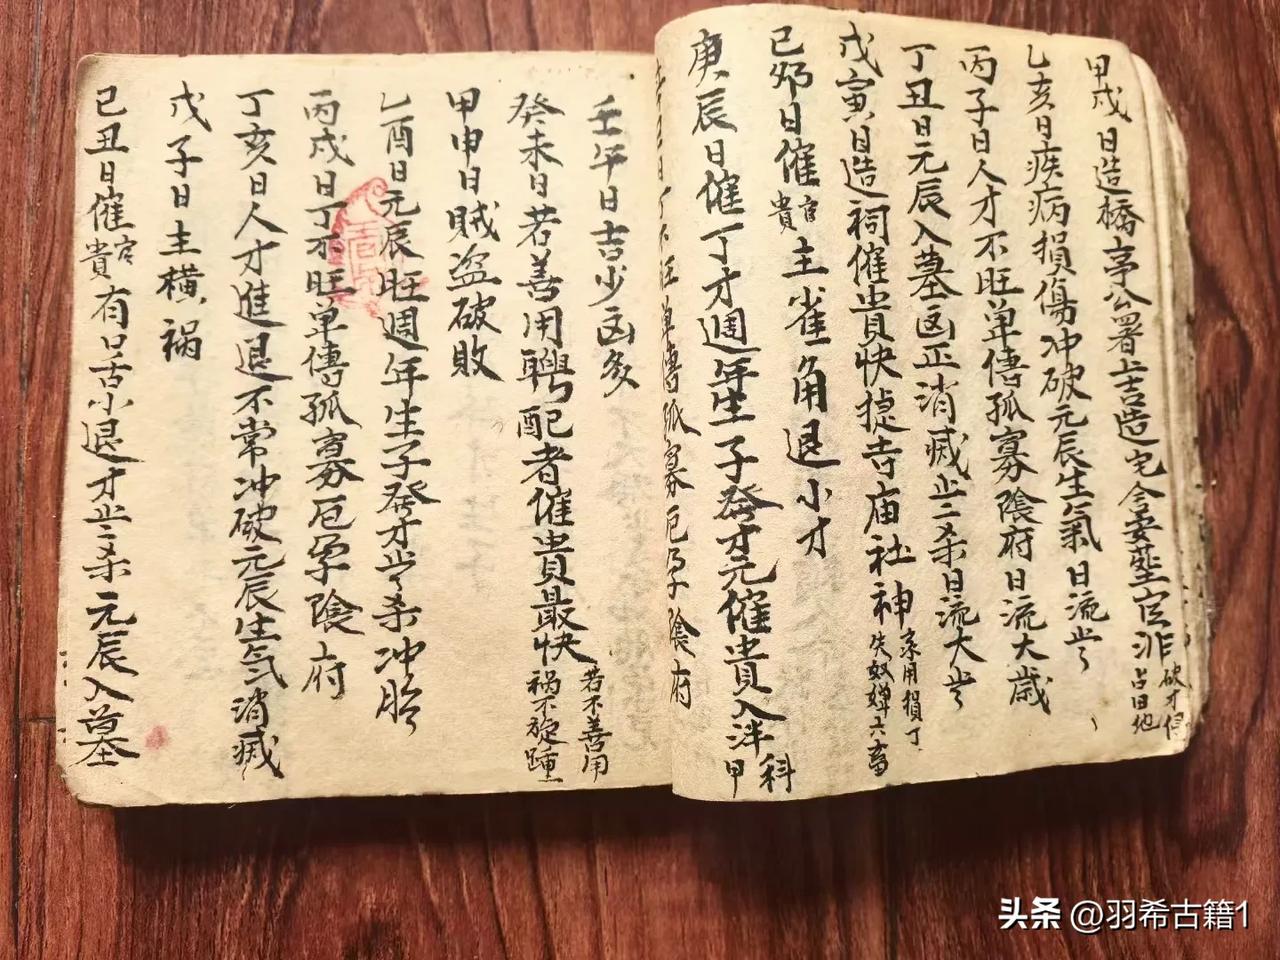 甲戌日造橋亭公署上吉造宅舍妄塟官非破才
占田地
乙亥日疾病損傷冲破元辰生氣日流
丙子日人才不旺单傳孤寡陰府日流大歲
丁丑日元辰入墓凶正消滅二杀日流大
戊寅日造祠催貴快捷寺庙社神家用損丁
失奴婢六畜
己夘日催官貴主雀角退小才
庚辰日催丁才週年生子發才元催貴入泮科甲
旺单傳孤寡厄孕陰府
壬午日吉少凶多
癸未日若善用聘配者催貴最快若不善用
祸不旋踵
甲申日賊盗破敗
乙酉日元辰旺週年生子發才杀冲胎
丙戌日丁不旺单傳孤寡厄孕陰府
丁亥日人才進退不常冲破元辰生氕消滅
戊子日主横祸
己丑日催官貴有口舌小退才二杀元辰入墓
头条 @羽希古籍1